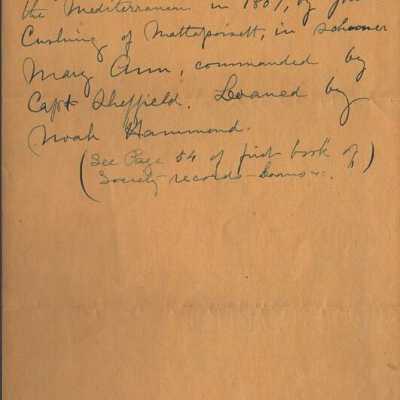 the Mediterranean in 1807, of
Cushing of Mattapoisett, in schooner
Mary Ann, commanded by
Capt Sheffield. Loaned by
Noah Hammond.
(See Page 54 of first book of)
Society records-Loans &c.